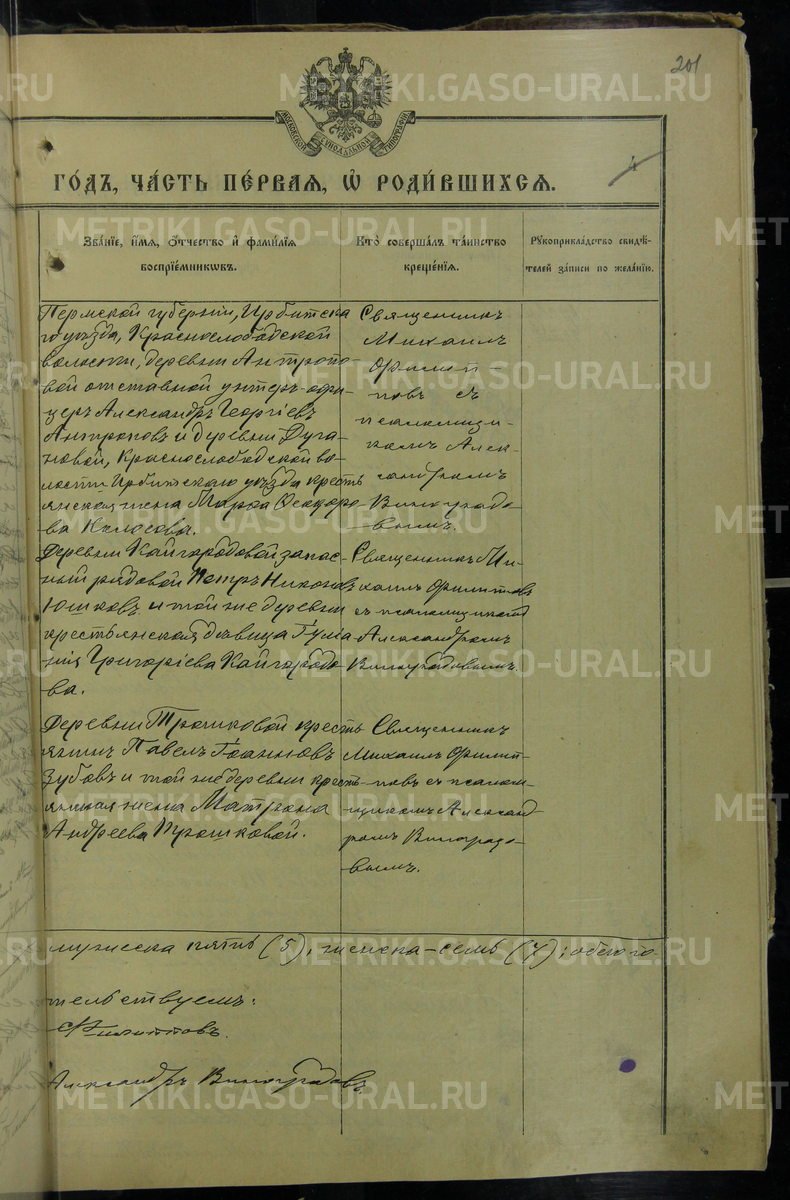 201
МОСКОВСКОЙ СѴНОДАЛЬНОЙ ТИПОГРАФІИ
4
ГО́ДЪ, ЧА́СТЬ ПЕ́РВАЯ, Ѡ҆ РОДИ́ВШИХСѦ.
Зва́нїе, и҆́мѧ, ѻ҆́тчество и҆ фами́лїѧ
воспрїе́мникѡвъ.
Кто̀ соверша́лъ та́инство
креще́нїѧ.
Рꙋкоприкла́дство свидѣ́-
телей за́писи по жела́нїю.
Пермской губерніи, Ирбитска
го уѣзда, Краснослободской
волости, деревни Антропо-
вой отставной унтеръ-офи-
церъ Александръ Георгіевъ
Антроповъ и деревни Дуга-
новой, Краснослободской во-
лости Ирбитскаго уѣзда кресть
янская жена Марѳа Ѳеодоро-
ва Колосова.
Священникъ
Михаилъ
Филип-
повъ съ
псаломщи-
комъ Алек-
сандромъ
Виноградо-
вымъ.
Деревни Кайгородовой запас-
ный рядовой Петръ Никоновъ
Юшковъ и той же деревни
крестьянская дѣвица Гуліа
нія Григоріева Кайгородо-
ва.
Священникъ Ми-
хаилъ Филипповъ
съ псаломщикомъ
Александромъ
Виноградовымъ.
Деревни Трошковой кресть
янинъ Павелъ Іоанновъ
Зубовъ и той же деревни кресть-
янская жена Матрона
Андреева Трошковой.
Священникъ
Михаилъ Филип-
повъ съ псалом-
щикомъ Александ
ромъ Виноградо-
вымъ.
мужеска пять (5), женска-семь (7); обоего
тельствуемъ:
Филипповъ.
Александръ Виноградовъ.
METRIKI.GASO-URAL.RU